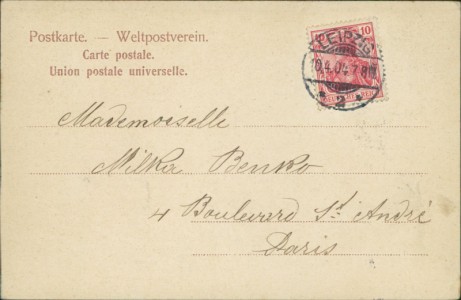 Postkarte. — Weltpostverein.
Carte postale.
Union postale universelle.
10
LEIPZIG
10.4.04.7-8N
* 2 *
Mademoiselle
Milka Benko
4 Boulevard St. André
Paris